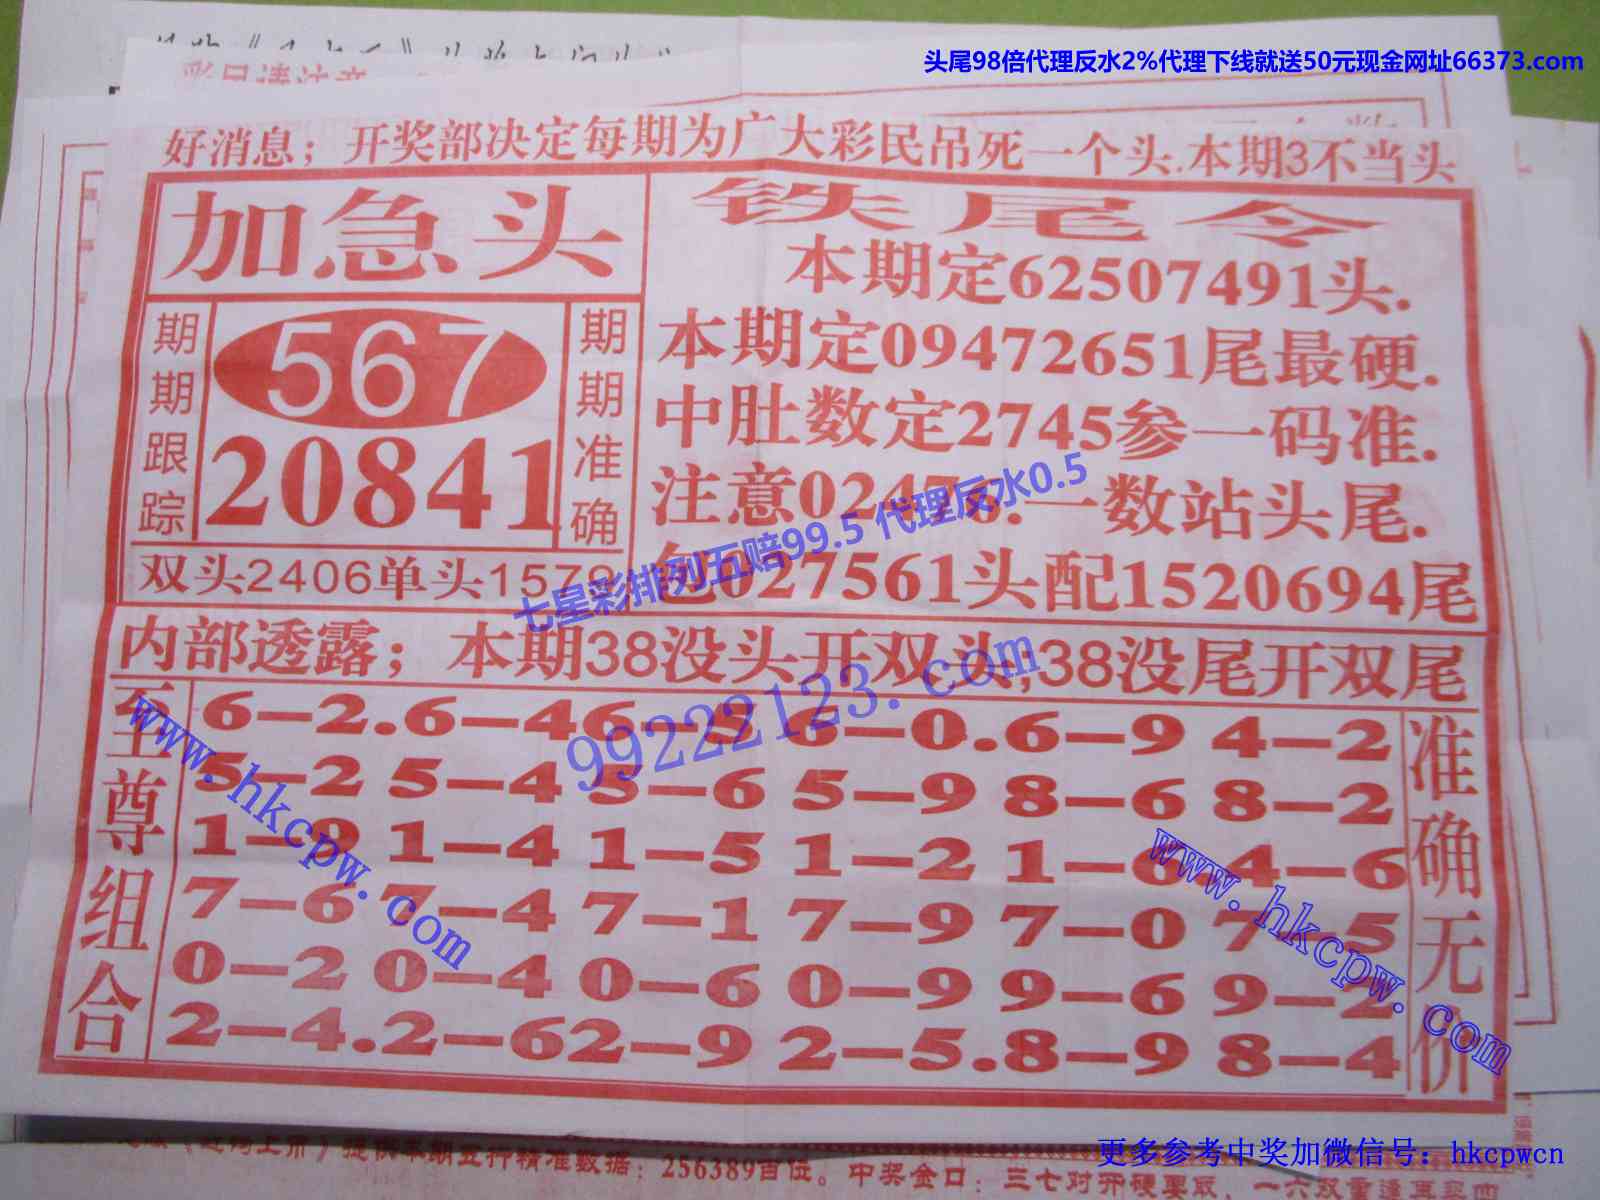 头尾98倍代理反水2%代理下线就送50元现金网址66373.com
好消息；开奖部决定每期为广大彩民吊死一个头.本期3不当头
加急头
期期跟踪
567
20841
期期准确
双头2406单头1579
铁尾令
本期定62507491头.
本期定09472651尾最硬.
中肚数定2745参一码准.
注意02476.一数站头尾.
包027561头配1520694尾
七星彩排列五赔99.5 代理反水0.5
内部透露；本期38没头开双头;38没尾开双尾
99222123.com
至尊组合
6—2.6—46—8 6—0.6—9 4—2
5—2 5—4 5—6 5—9 8—6 8—2
1—9 1—4 1—5 1—2 1—6 4—6
7—6 7—4 7—1 7—9 7—0 7—5
0—2 0—4 0—6 0—9 9—6 9—2
2—4.2—62—9 2—5.8—9 8—4
准确无价
www.hkcpw.com
www.hkcpw.com
提供本期五行精准数据：256389首位。中奖金口：三七对开硬要取，一六双量逢
更多参考中奖加微信号：hkcpwcn